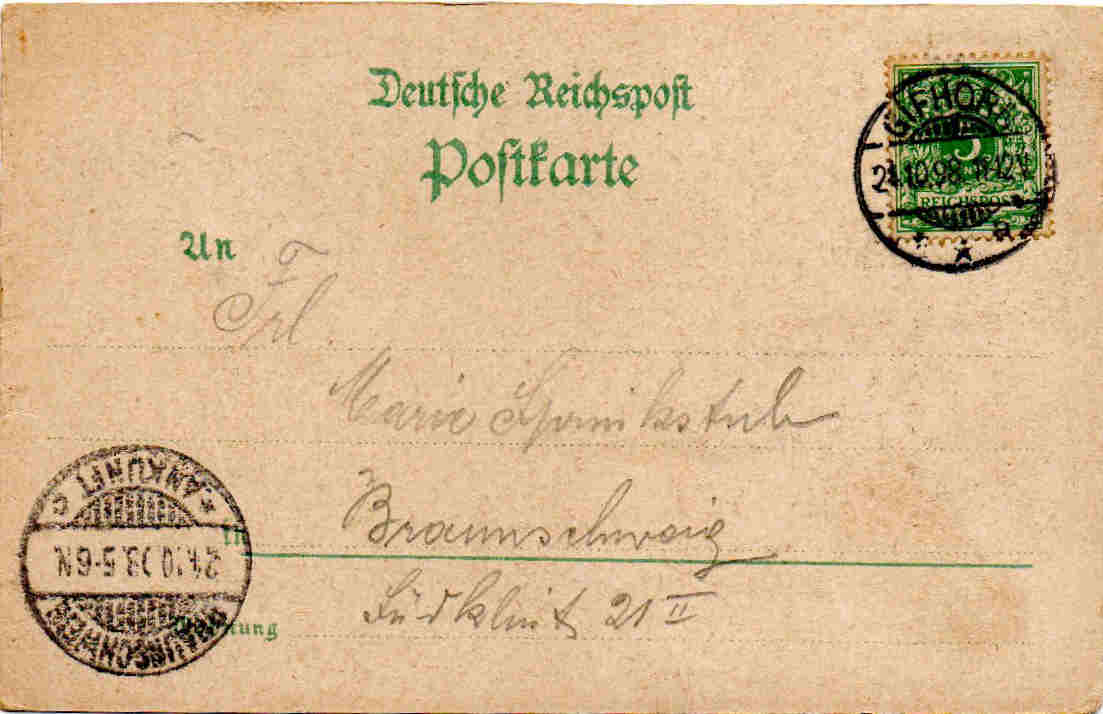 Deutsche Reichspost
Postkarte
GIFHORN
24.10.98. 11-12V.
a
REICHSPOST
An
Frl.
Marie
Braunschweig
Südklint 21 II
ANKUNFT c
24.10.98.5-6N.
BRAUNSCHWEIG